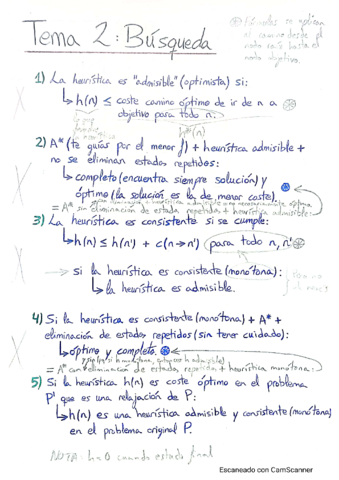 Tema 2: Búsqueda
Fórmulas se aplican
el camino desde el
nodo raíz hasta el
nodo objetivo.
1) La heurística es "admisible" (optimista) si:
↳ h(n) ≤ coste camino óptimo de ir de n a
objetivo para todo n.
h*(n)
2) A* (te guías por el menor f) + heurística admisible +
no se eliminan estados repetidos:
↳ completo (encuentra siempre solución) y
óptimo (la solución es la de menor coste).
= A* sin eliminación de estados repetidos + heurística admisible
3) La heurística es consistente si se cumple:
↳ h(n) ≤ h(n') + c(n→n') para todo n, n'
→ si la heurística es consistente (monótona):
↳ la heurística es admisible.
4) Si la heurística es consistente (monótona) + A* +
eliminación de estados repetidos (sin tener cuidado):
↳ óptimo y completo.
= A* con eliminación de estados repetidos + heurística monótona
5) Si la heurística h(n) es coste óptimo en el problema
P' que es una relajación de P:
↳ h(n) es una heurística admisible y consistente (monótona)
en el problema original P.
NOTA: h=0 cuando estado final
Escaneado con CamScanner